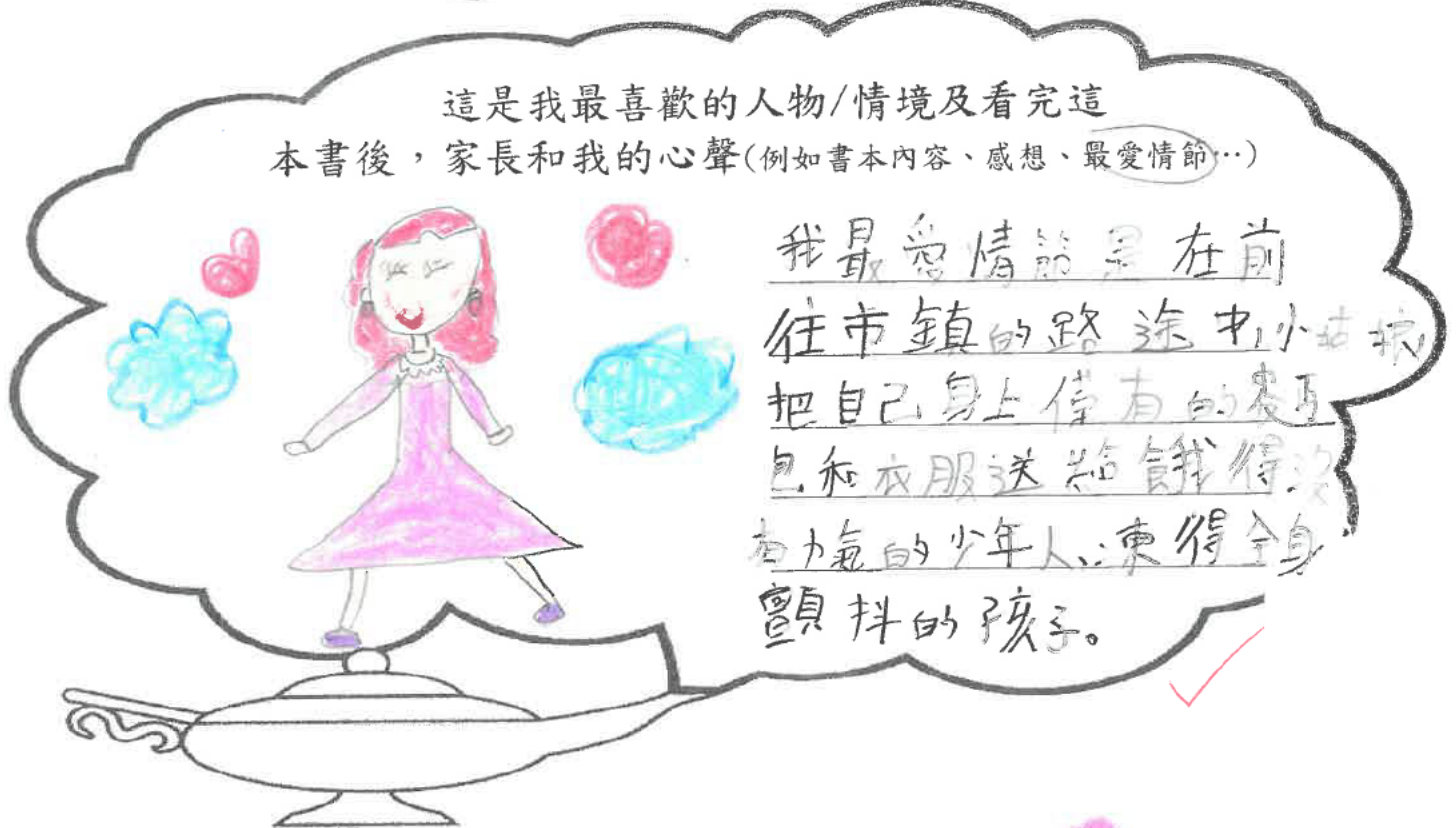 這是我最喜歡的人物/情境及看完這
本書後，家長和我的心聲(例如書本內容、感想、最愛情節…)
我最愛情節是在前
往市鎮的路途中,小姑娘
把自己身上僅有的麥丏
包和衣服送給餓得沒
有力氣的少年人、凍得全身
顫抖的孩子。